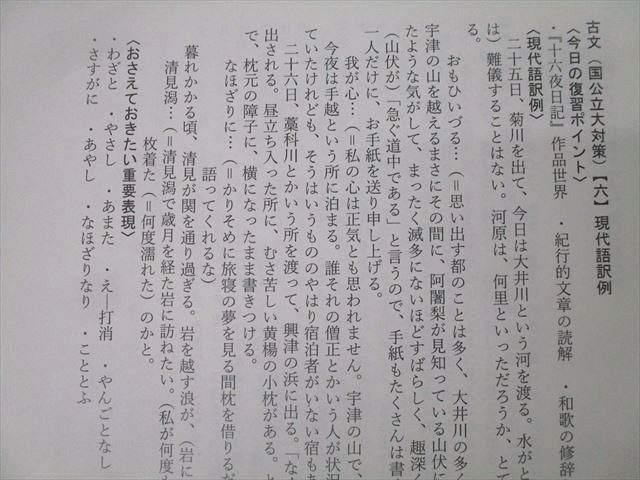 古文（国公立大対策）【六】現代語訳例
〈今日の復習ポイント〉
・『十六夜日記』作品世界　・紀行的文章の読解　・和歌の修辞
〈現代語訳例〉
二十五日、菊川を出て、今日は大井川という河を渡る。水がと
は）難儀することはない。河原は、何里といっただろうか、とて
る。
おもひいづる…（＝思い出す都のことは多く、大井川の多く
宇津の山を越えるまさにその間に、阿闍梨が見知っている山伏に
たような気がして、まったく滅多にないほどすばらしく、趣深く
（山伏が）「急ぐ道中である」と言うので、手紙もたくさんは書
一人だけに、お手紙を送り申し上げる。
我が心…（＝私の心は正気とも思われません。宇津の山で、
今夜は手越という所に泊まる。誰それの僧正とかいう人が状況
ていたけれども、そうはいうもののやはり宿泊者がいない宿もあ
二十六日、藁科川とかいう所を渡って、興津の浜に出る。「な
出される。昼立ち入った所に、むさ苦しい黄楊の小枕がある。と
で、枕元の障子に、横になったまま書きつける。
なほざりに…（＝かりそめに旅寝の夢を見る間枕を借りるだ
語ってくれるな）
暮れかかる頃、清見が関を通り過ぎる。岩を越す浪が、（岩に
清見潟…（＝清見潟で歳月を経た岩に訪ねたい。（私が何度も
枚着た（＝何度濡れた）のかと。
〈おさえておきたい重要表現〉
・わざと　・やさし　・あまた　・え―打消　・やんごとなし
・さすがに　・あやし　・なほざりなり　・こととふ